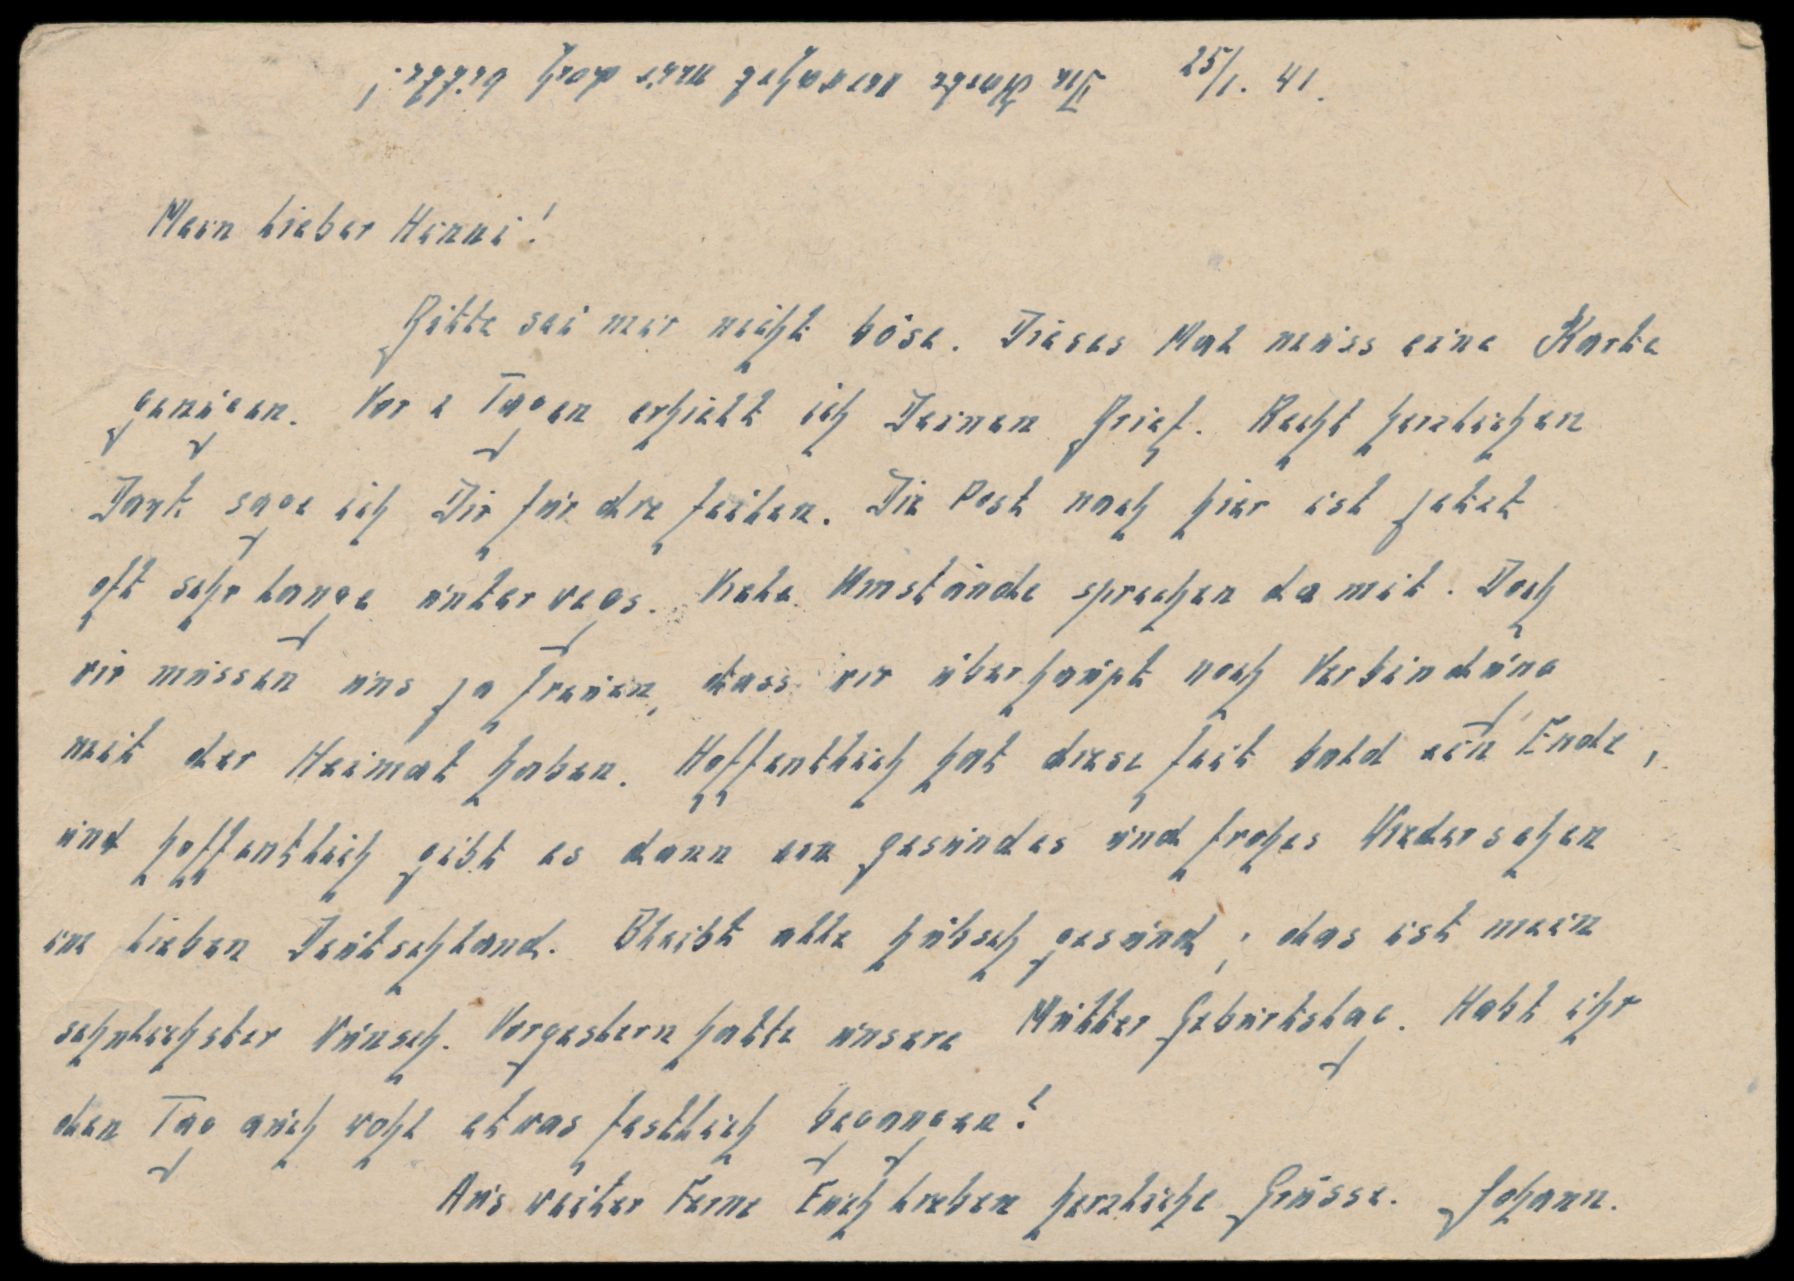 25/1. 41.
Die Marke verwahrt mir doch bitte!
Mein lieber Henni!
Bitte sei mir nicht böse. Dieses Mal muss eine Karte
genügen. Vor 2 Tagen erhielt ich Deinen Brief. Recht herzlichen
Dank sage ich Dir für die Zeilen. Die Post nach hier ist jetzt
oft sehr lange unterwegs. Viele Umstände sprechen da mit. Doch
wir müssen uns ja freuen, dass wir überhaupt noch Verbindung
mit der Heimat haben. Hoffentlich hat diese Zeit bald ein Ende,
und hoffentlich gibt es dann ein gesundes und frohes Wiedersehen
im lieben Deutschland. Bleibt alle hübsch gesund; das ist mein
sehnlichster Wunsch. Vorgestern hatte unsere Mutter Geburtstag. Habt ihr
den Tag auch wohl etwas festlich begangen?
Aus weiter Ferne Euch lieben herzliche Grüsse. Johann.